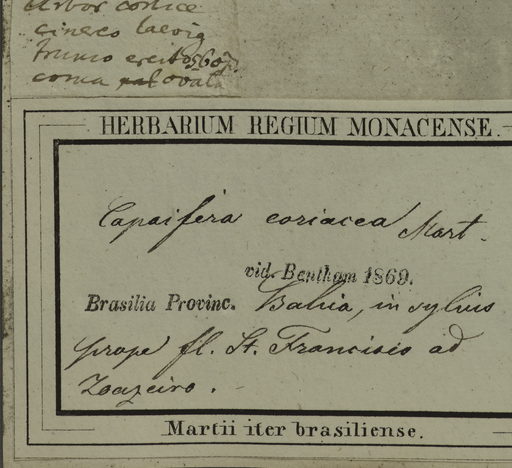 Arbor cortice
cinereo laevig
trunco erecto 5-60 p.
coma ovata
HERBARIUM REGIUM MONACENSE.
Copaifera coriacea Mart.
vid. Bentham 1869.
Brasilia Provinc. Bahia, in sylvis
prope fl. St. Francisco ad
Joazeiro.
Martii iter brasiliense.